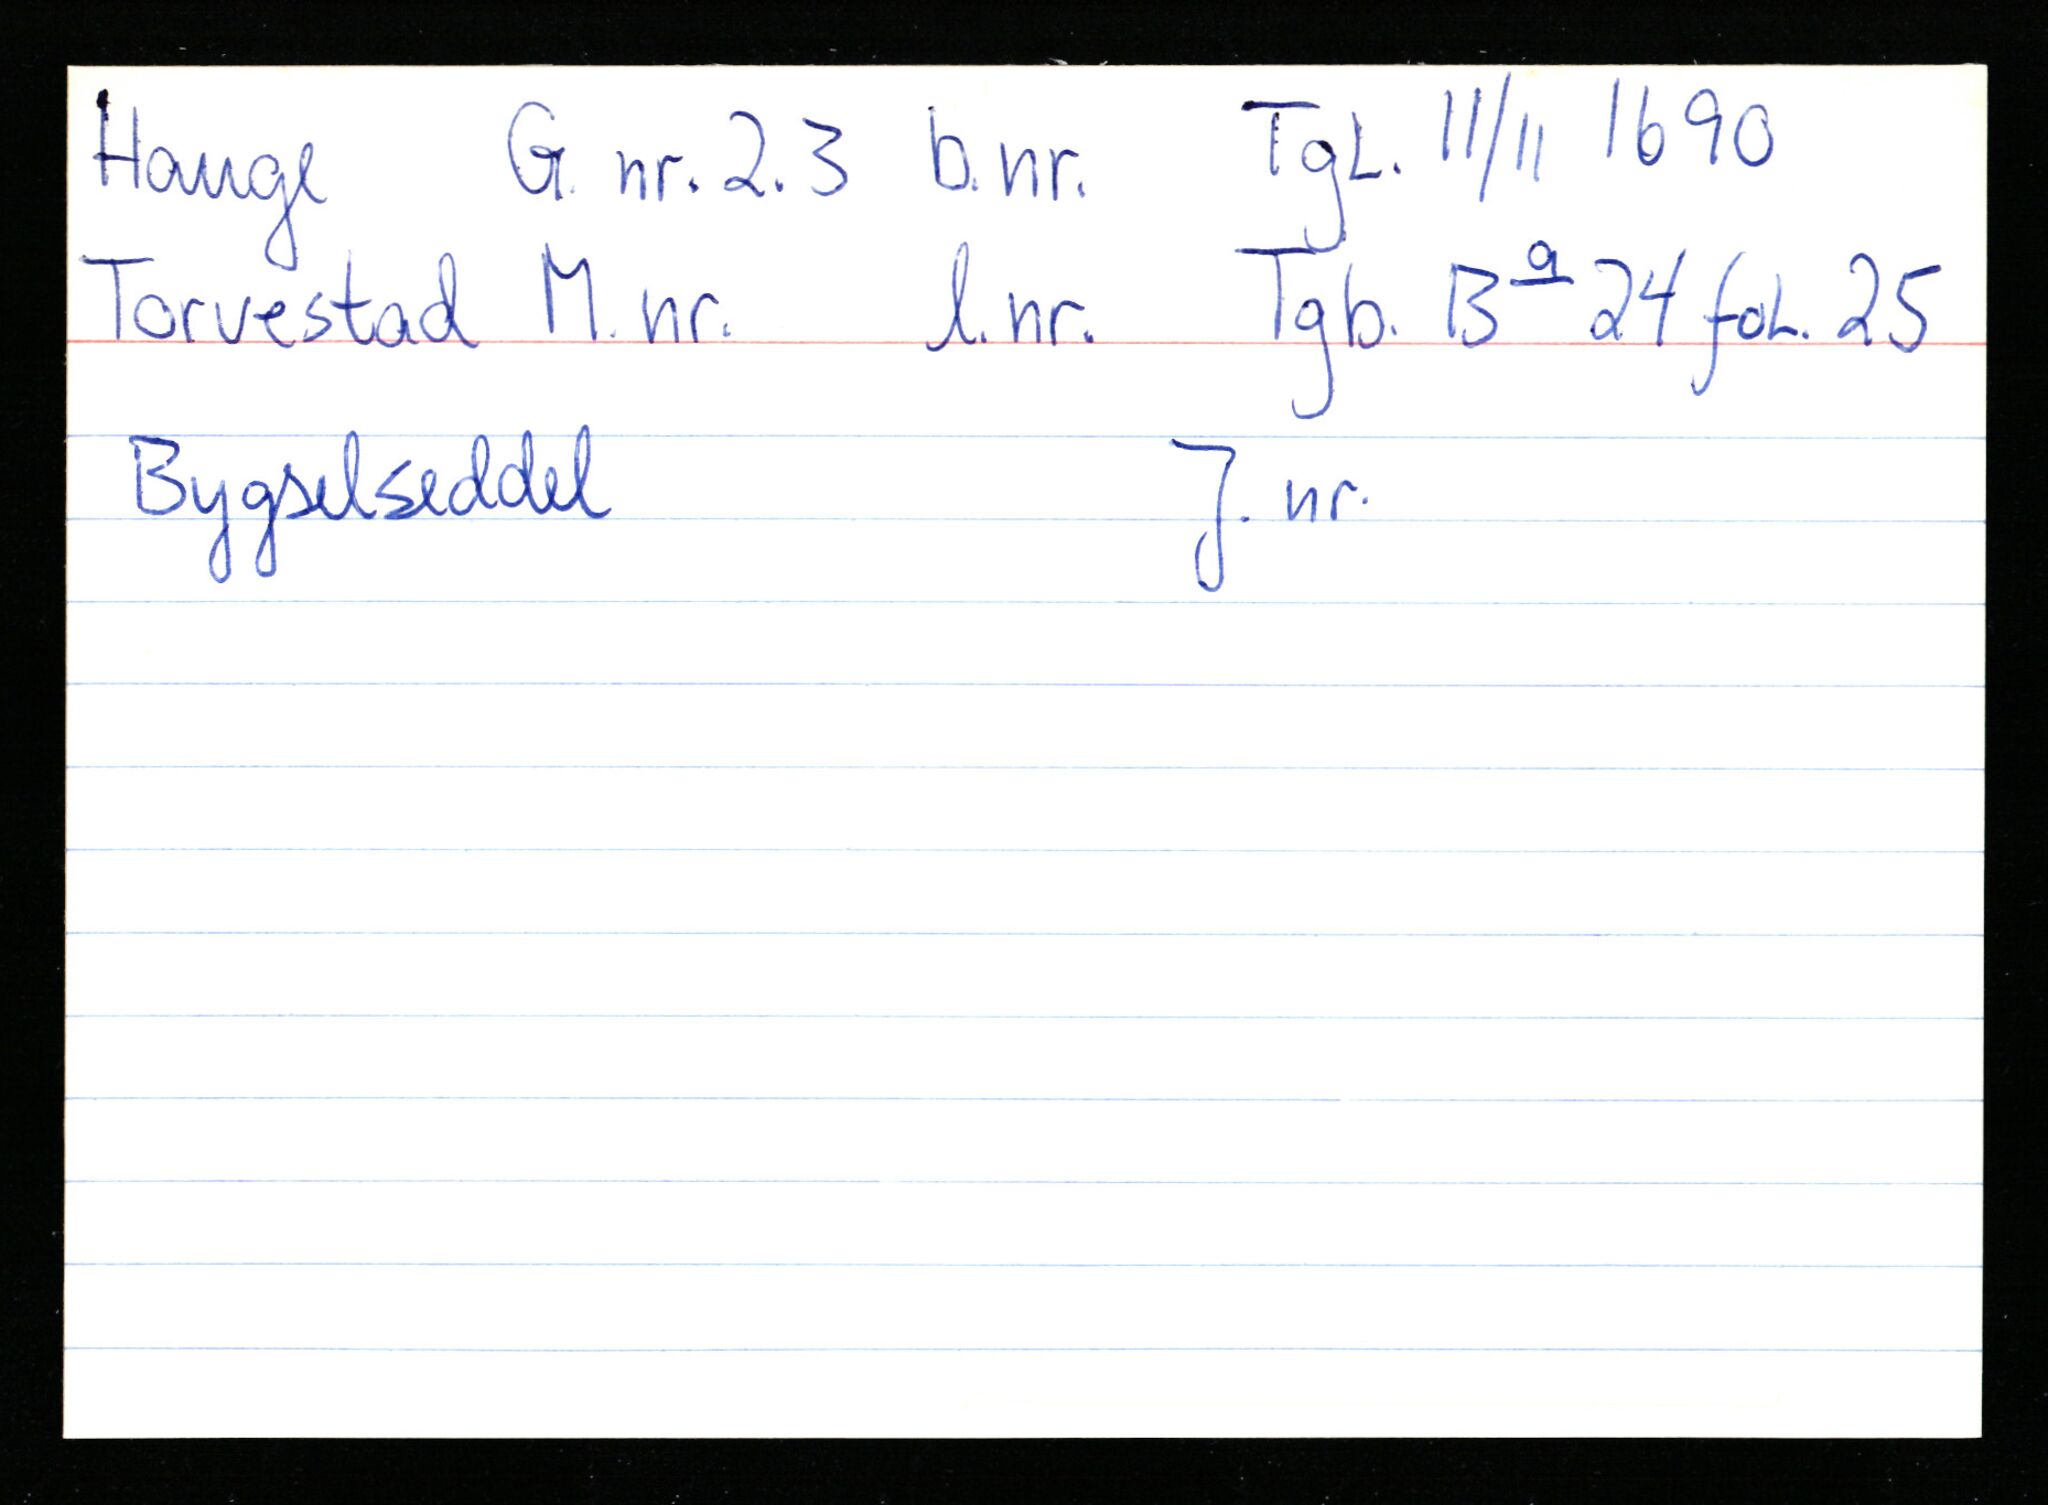 Hauge G. nr. 2.3 b.nr. TgL. 11/11 1690
Torvestad M. nr. l. nr. Tgb. B a 24 foL. 25
Bygselseddel J. nr.